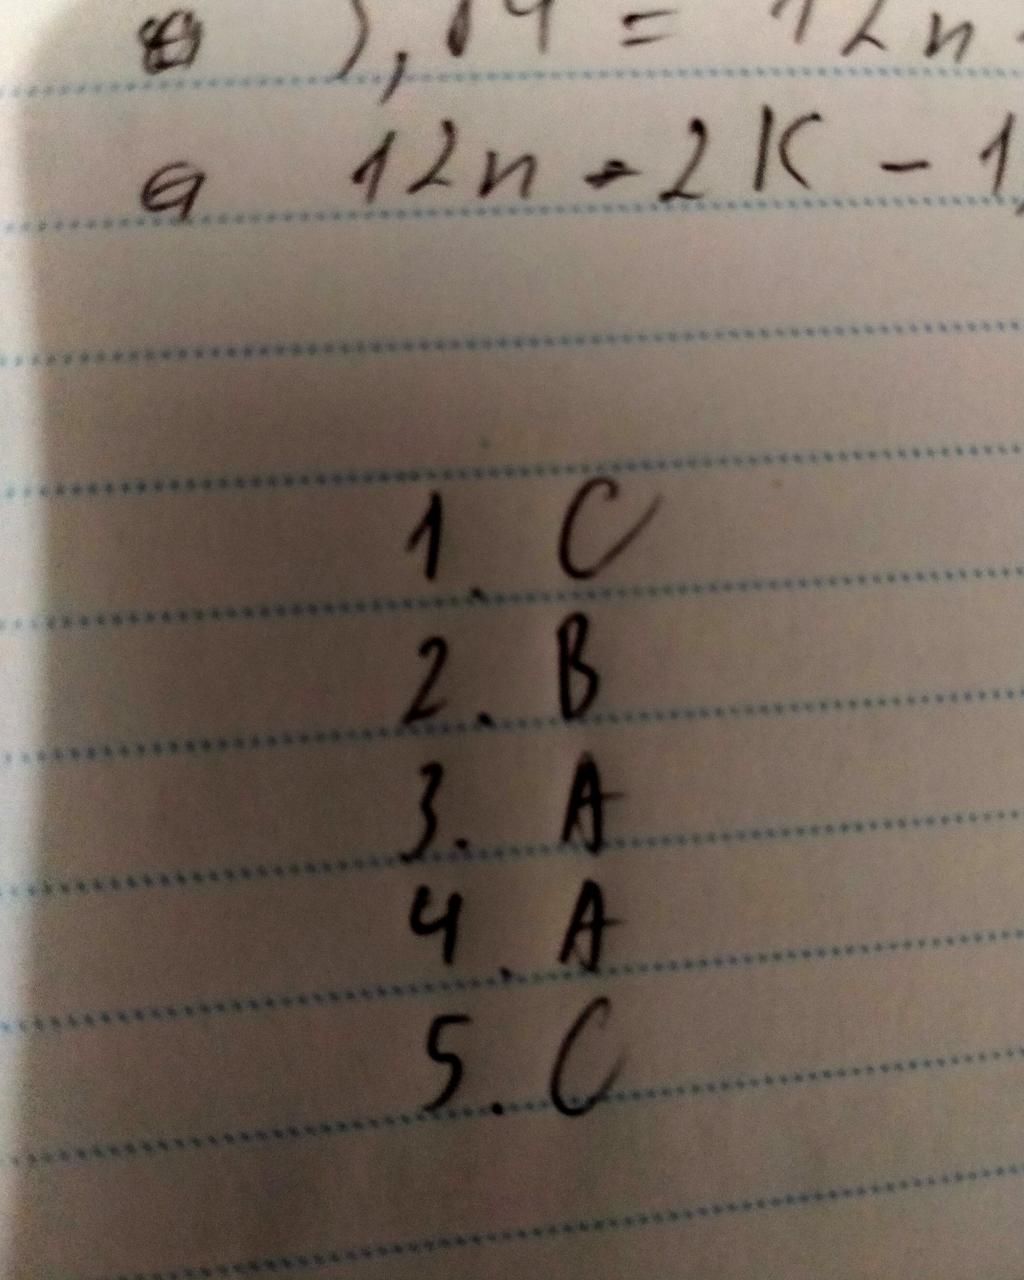 = 12n
12n - 2K - 1,
1. C
2. B
3. A
4. A
5. C